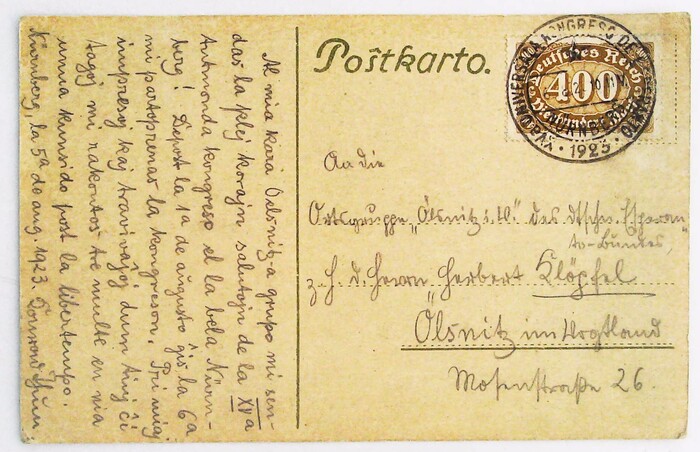 Postkarto.
Al mia kara Oelsnitz-a grupo mi sen-
das la plej korajn salutojn de la XVa
kongreso el la bela Nürn-
berg! Depost la 1a de augusto ĝis la 6a
mi partoprenas la kongreson. Pri miaj
impresoj kaj travivaĵoj dum tiuj ĉi
tagoj mi rakontos tre multe en nia
unua kunsido post la libertempo.
Nürnberg, la 5a de aug. 1923.
An die
Ortsgruppe „Ölsnitz i. V." des dtschen. Esperan-
to-Bundes,
z. H. d. Herrn Herbert Klöpfel
Ölsnitz im Vogtland
Mosenstraße 26.
Deutsches Reich
400
XVa UNIVERSALA KONGRESO DE
NÜRNBERG
1923